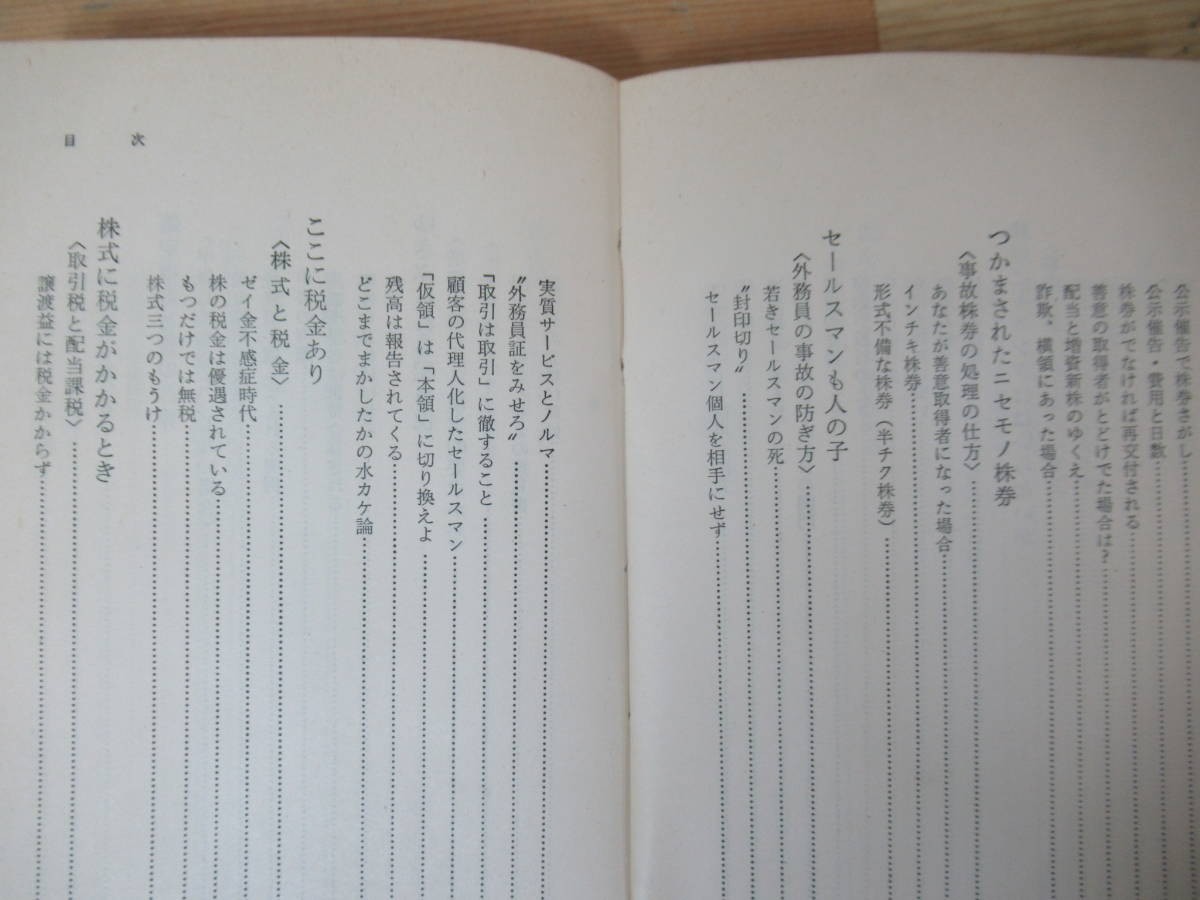 公示催告で株券さがし
公示催告・費用と日数
株券がでなければ再交付される
善意の取得者がとどけでた場合は?
配当と増資新株のゆくえ
詐欺、横領にあった場合
つかまされたニセモノ株券
〈事故株券の処理の仕方〉
あなたが善意取得者になった場合
インチキ株券
形式不備な株券(半チク株券)
セールスマンも人の子
〈外務員の事故の防ぎ方〉
若きセールスマンの死
〝封印切り〟
セールスマン個人を相手にせず
実質サービスとノルマ
〝外務員証をみせろ〟
「取引は取引」に徹すること
顧客の代理人化したセールスマン
「仮領」は「本領」に切り換えよ
残高は報告されてくる
どこまでまかしたかの水カケ論
ここに税金あり
〈株式と税金〉
ゼイ金不感症時代
株の税金は優遇されている
もつだけでは無税
株式三つのもうけ
株式に税金がかかるとき
〈取引税と配当課税〉
譲渡益には税金かからず
目次